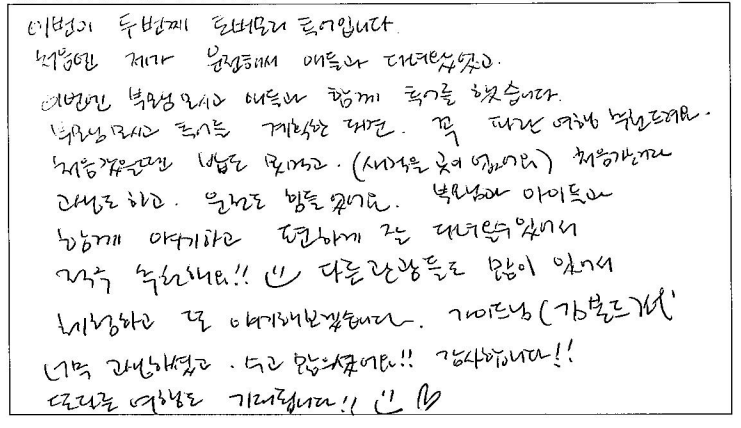 이번이 두번째 토버모리 투어입니다.
처음엔 제가 운전해서 애들과 다녀왔었고.
이번엔 부모님 모시고 애들과 함께 투어를 했습니다.
부모님 모시고 투어를 계획한 대신. 꼭 파란여행 추천드려요.
처음갔을때엔 밥도 못먹고. (사먹을 곳이 없어요) 처음가는거라
고생도 하고. 운전도 힘들었어요. 부모님과 아이들과
함께 얘기하고 편하게 잘 다녀올수있어서
적극 추천해요!!
다른 관광들도 많이 있어서
체험하고 또 얘기해보겠습니다. 가이드님(김
너무 고생하셨고. 수고 많으셨어요!! 감사합니다!!
또다른 여행도 기대됩니다!!